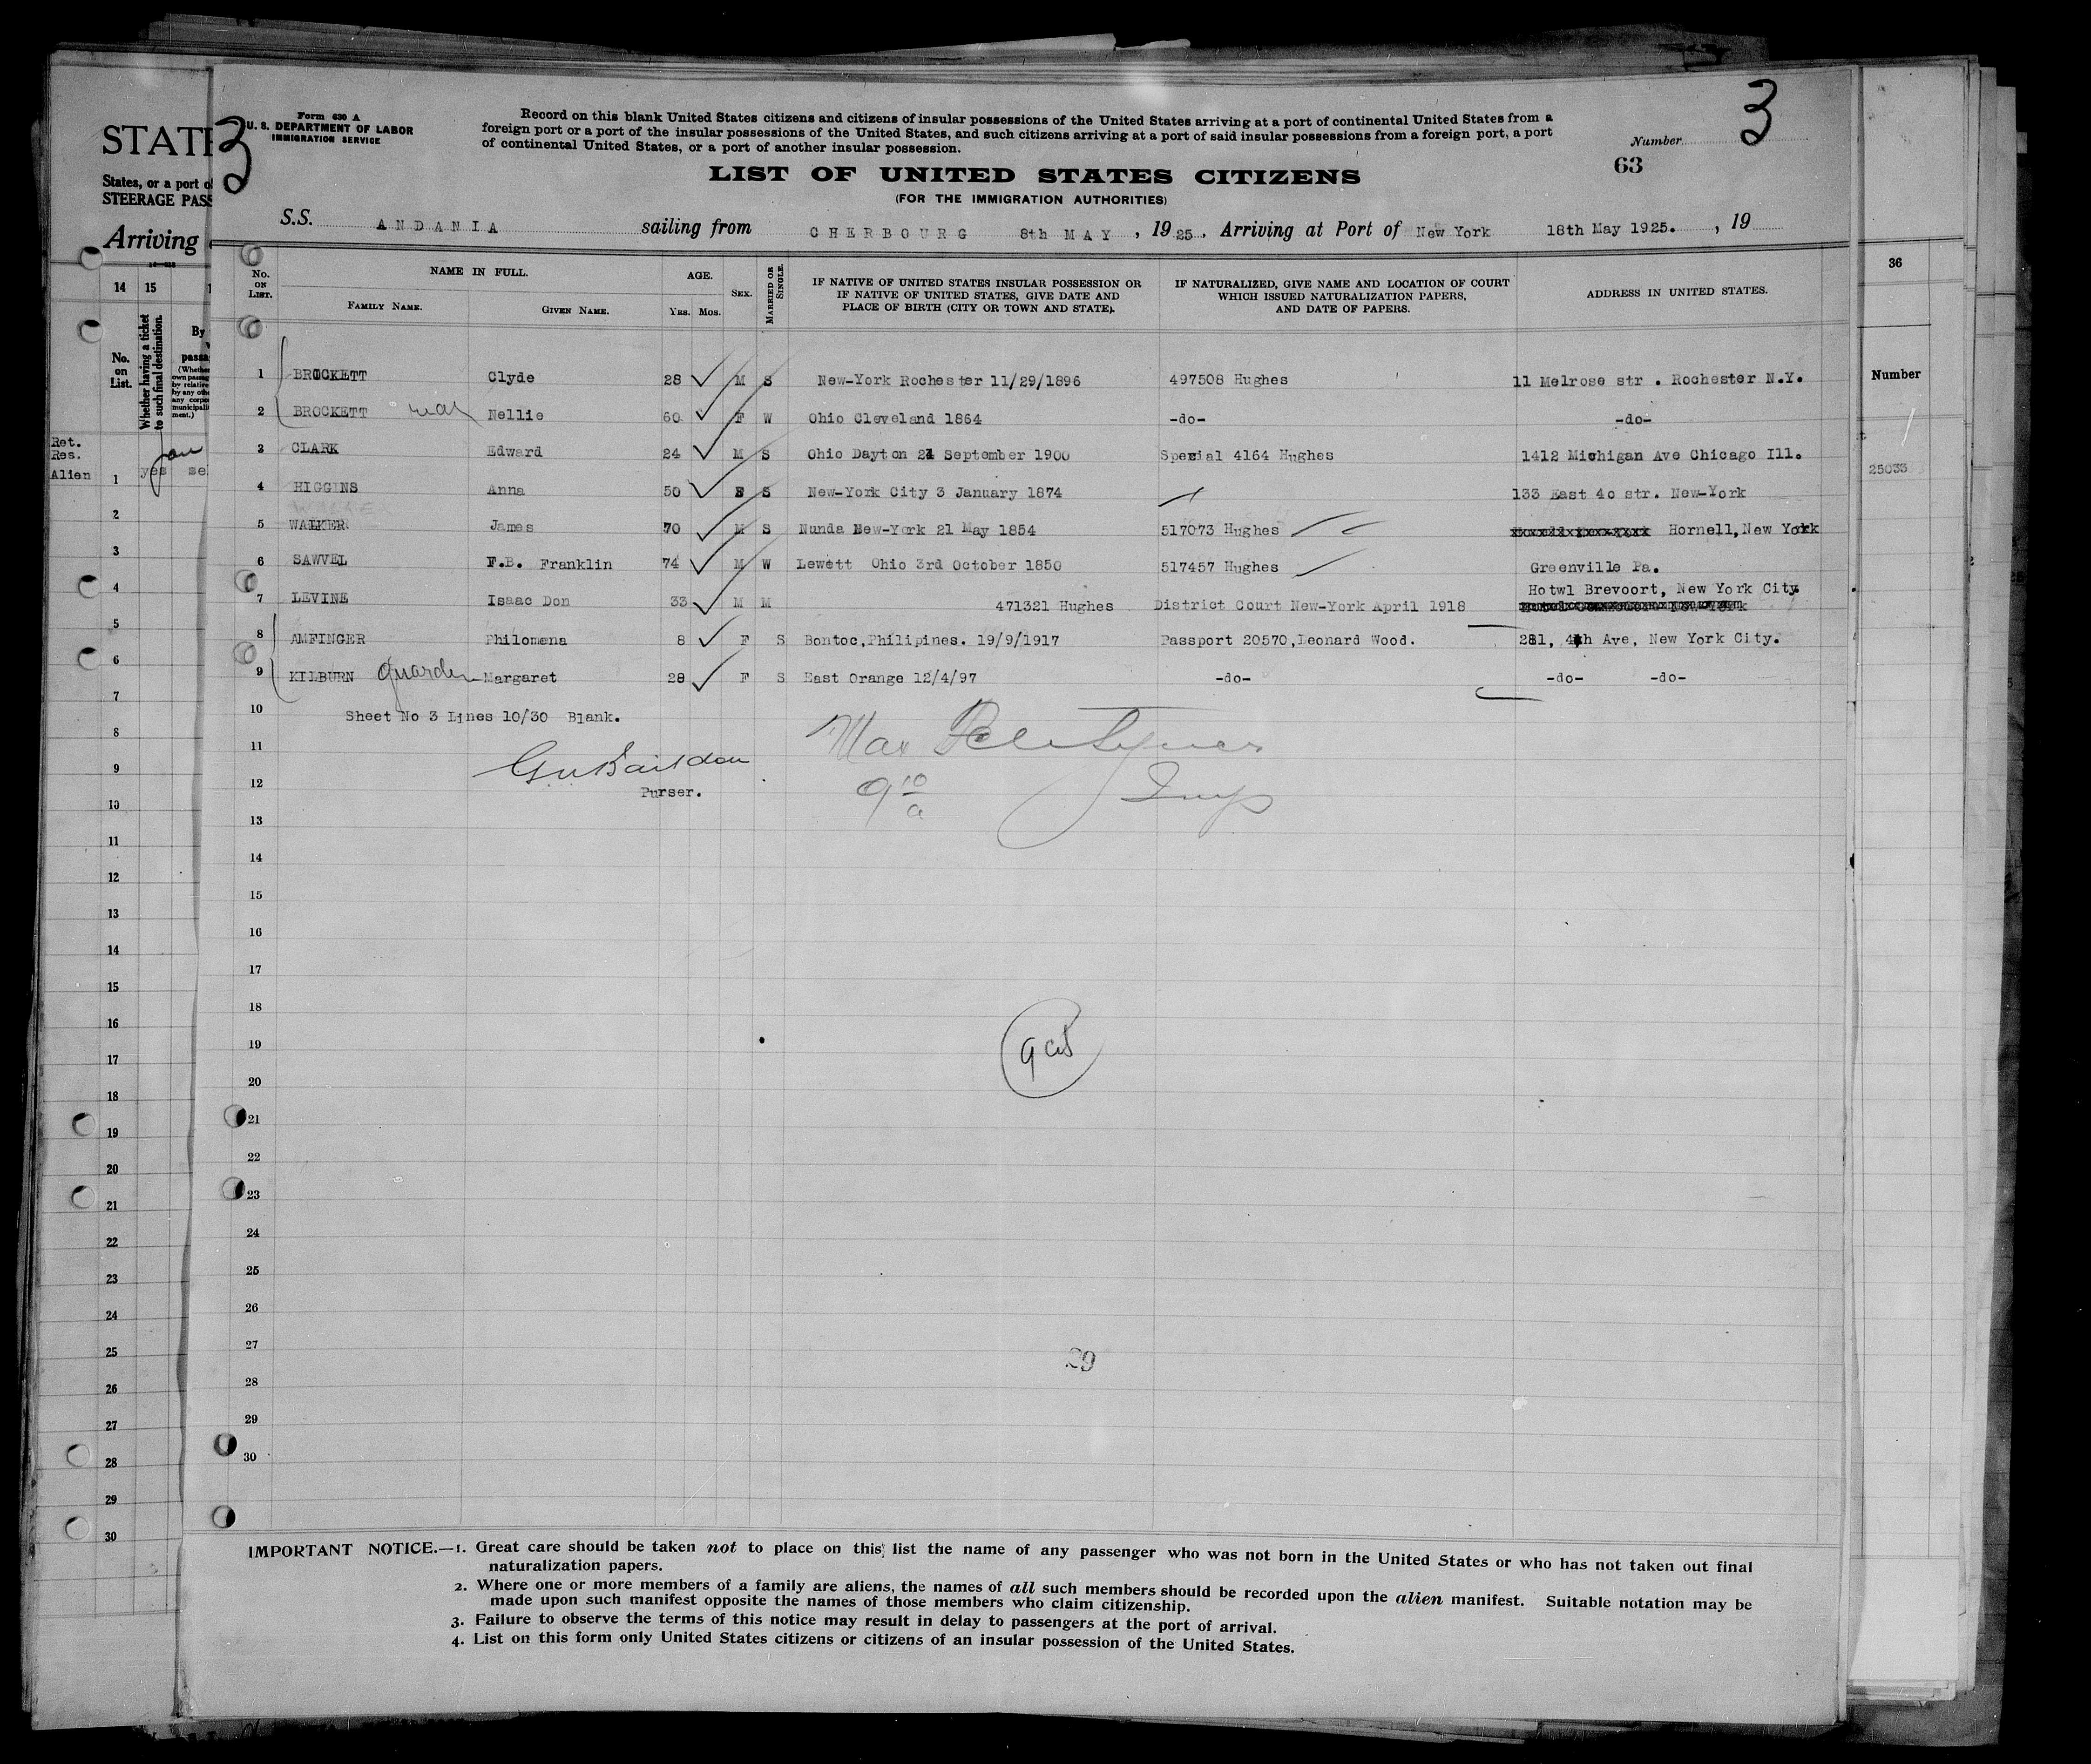 STATE
States, or a port of
STEERAGE PASS
Arriving
14 15
No. on List.
Whether having a ticket to such final destination.
By
passa
(Whether
own passage
by relative
by any othe
any corpo
municipali
ment.)
Ret.
Res.
Alien 1 yes se
3
Form 630 A
U. S. DEPARTMENT OF LABOR
IMMIGRATION SERVICE
Record on this blank United States citizens and citizens of insular possessions of the United States arriving at a port of continental United States from a
foreign port or a port of the insular possessions of the United States, and such citizens arriving at a port of said insular possessions from a foreign port, a port
of continental United States, or a port of another insular possession.
Number 3
63
LIST OF UNITED STATES CITIZENS
(FOR THE IMMIGRATION AUTHORITIES)
S.S. ANDANIA sailing from CHERBOURG 8th MAY, 1925, Arriving at Port of New York 18th May 1925. , 19
No. on List.
NAME IN FULL.
Family Name. Given Name.
AGE.
Yrs. Mos.
Sex.
Married or Single.
IF NATIVE OF UNITED STATES INSULAR POSSESSION OR
IF NATIVE OF UNITED STATES, GIVE DATE AND
PLACE OF BIRTH (CITY OR TOWN AND STATE).
IF NATURALIZED, GIVE NAME AND LOCATION OF COURT
WHICH ISSUED NATURALIZATION PAPERS,
AND DATE OF PAPERS.
ADDRESS IN UNITED STATES.
1 BROCKETT Clyde 28 M S New-York Rochester 11/29/1896 497508 Hughes 11 Melrose str . Rochester N.Y.
2 BROCKETT Nellie 60 F W Ohio Cleveland 1864 -do- -do-
3 CLARK Edward 24 M S Ohio Dayton 21 September 1900 Spezial 4164 Hughes 1412 Michigan Ave Chicago Ill.
4 HIGGINS Anna 50 F S New-York City 3 January 1874 133 East 40 str. New-York
5 WALKER James 70 M S Nunda New-York 21 May 1854 517073 Hughes Hornell, New York
6 SAWVEL F.B. Franklin 74 M W Lewett Ohio 3rd October 1850 517457 Hughes Greenville Pa.
Hotwl Brevoort, New York City
7 LEVINE Isaac Don 33 M M 471321 Hughes District Court New-York April 1918
8 AMFINGER Philomena 8 F S Bontoc, Philipines. 19/9/1917 Passport 20570, Leonard Wood. 281, 4th Ave, New York City.
9 KILBURN Margaret 28 F S East Orange 12/4/97 -do- -do- -do-
10 Sheet No 3 Lines 10/30 Blank.
11
12 Purser.
13
14
15
16
17
18
19
20
21
22
23
24
25
26
27
28
29
30
29
36
Number
25033
1
2
3
4
5
6
7
8
9
10
11
12
13
14
15
16
17
18
19
20
21
22
23
24
25
26
27
28
29
30
IMPORTANT NOTICE.—1. Great care should be taken not to place on this list the name of any passenger who was not born in the United States or who has not taken out final
naturalization papers.
2. Where one or more members of a family are aliens, the names of all such members should be recorded upon the alien manifest. Suitable notation may be
made upon such manifest opposite the names of those members who claim citizenship.
3. Failure to observe the terms of this notice may result in delay to passengers at the port of arrival.
4. List on this form only United States citizens or citizens of an insular possession of the United States.